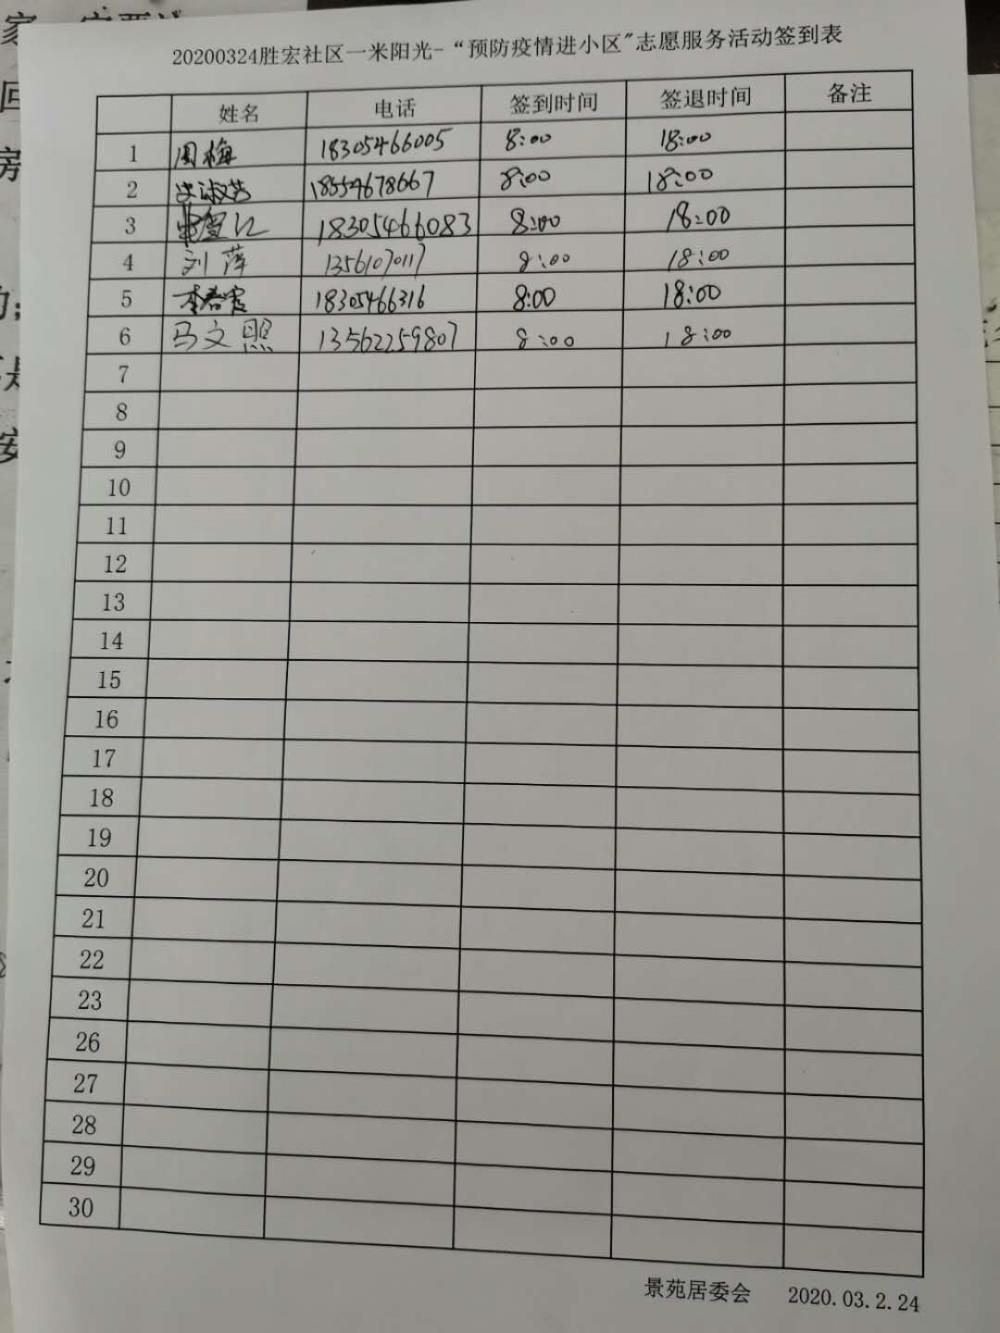 20200324胜宏社区一米阳光-“预防疫情进小区"志愿服务活动签到表
姓名 电话 签到时间 签退时间 备注
1 周梅 18305466005 8:00 18:00
2 18554678667 8:00 18:00
3 18305466083 8:00 18:00
4 刘萍 13561070117 8:00 18:00
5 李春霞 18305466316 8:00 18:00
6 马文照 13562259807 8:00 18:00
7
8
9
10
11
12
13
14
15
16
17
18
19
20
21
22
23
26
27
28
29
30
景苑居委会 2020.03.2.24